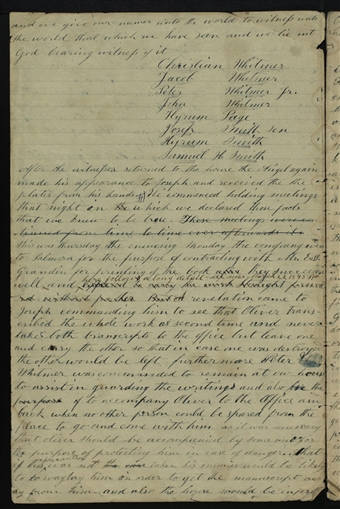 and we give our names unto the world to witness unto
the world that which we have seen and we lie not
God bearing witness of it
Christian Whitmer
Jacob Whitmer
Peter Whitmer Jr.
John Whitmer
Hyrum Page
Joseph Smith sen
Hyrum Smith
Samuel H Smith
after the witnesses returned to the house the Angel again
made his appearance to Joseph and received the
plates from his hands We commenced holding meetings
that night in which we declared those facts
that we knew to be true. These meetings were
from time to time ever afterwards
this was thursday the ensuing Monday the company
to Palmira for the purpose of contracting with Mr. E B
Grandin for printing of the book
well and
But a revelation came to
Joseph commanding him to see that Oliver trans-
cribed the whole work a second time and never
take both transcripts to the office but leave one
and carry the other so that in case one was destroyed
the other would be left furthermore Peter
Whitmer was commanded to remain at our house
to assist in guarding the writings and also
to accompany Oliver to the Office and
back when no other person could be spared from the
place to go and come with him as it was necessary
that oliver should be accompanied by some one for
the purpose of protecting him in case of danger
his enemies would be likely
to waylay him in order to get the manuscript
from him and also the house would be